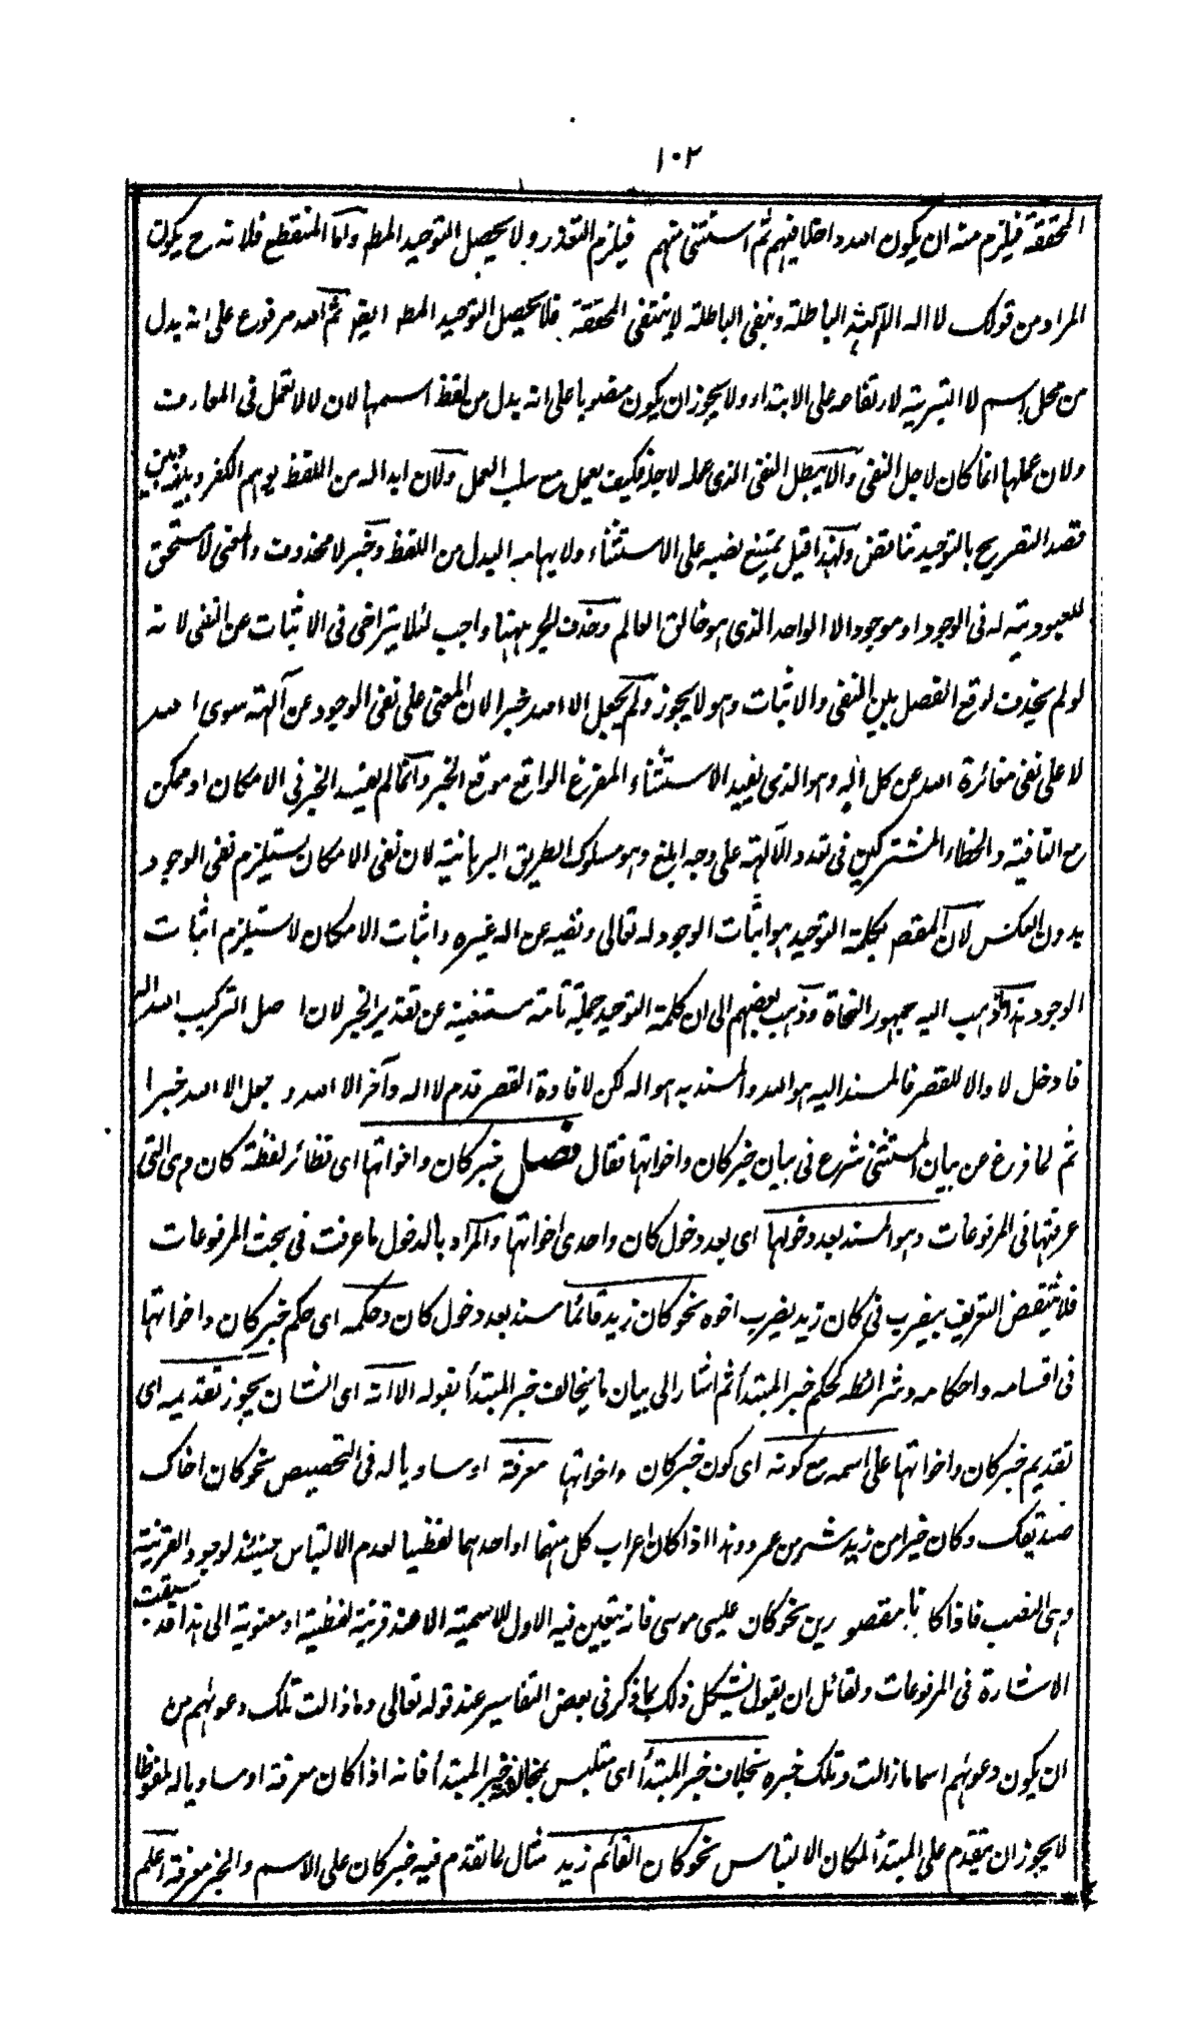 ١٠٢
المحققة فيلزم منه ان يكون الله داخلا فيهم ثم استثنى منهم فيلزم التعدد ولا يحصل التوحيد المط واما المنقطع فلانه ح يكون
المراد من قولك لا اله الآلهة الباطلة ونفى الباطلة لا ينتفى المحققة فلا يحصل التوحيد المط ايضا ثم الله مرفوع على انه بدل
من محل اسم لا التبرية لارتفاعه على الابتداء ولا يجوز ان يكون منصوبا على انه بدل من لفظ اسمها لان لا لا تعمل فى المعارف
ولان عملها انما كان لاجل النفى والا يبطل النفى الذى عمله لاجله فكيف يعمل مع سلب العمل ولان ابداله من اللفظ يوهم الكفر وبينه وبين
قصد التصريح بالتوحيد تناقض ولهذا قيل يمتنع نصبه على الاستثناء ولايهامه البدل من اللفظ وخبر لا محذوف والمعنى لا مستحق
للعبودية له فى الوجود او موجود الا الواحد الذى هو خالق العالم وحذف الخبر ههنا واجب لئلا يتراخى فى الاثبات عن النفى لانه
لو لم يحذف لوقع الفصل بين النفى والاثبات وهو لا يجوز ولم يجعل الا الله خبرا لان المعنى على نفى الوجود عن آلهة سوى الله
لا على نفى مغائرة الله عن كل اله وهو الذى يفيد الاستثناء المفرغ الواقع موقع الخبر وانما لم يقيد الخبر فى الامكان او ممكن
مع النافية والخطاء المشتركين فى تعدد الآلهة على وجه ابلغ وهو مسلوك الطريق البرهانية لان نفى الامكان يستلزم نفى الوجود
بدون العكس لان المقصم بكلمة التوحيد هو اثبات الوجود له تعالى ونفيه عن اله غيره واثبات الامكان لا يستلزم اثبات
الوجود هذا ذهب اليه جمهور النحاة وذهب بعضهم الى ان كلمة التوحيد جملة تامة مستغنية عن تقدير الخبر لان اصل التركيب الله اله
فادخل لا والا للقصر فالمسند اليه هو الله والمسند به هو اله لكن لافادة القصر قدم لا اله وآخر الا الله وجعل الا الله خبرا
ثم لما فرغ من بيان المستثنى شرع فى بيان خبر كان واخواتها فقال فصل خبر كان واخواتها اى نظائر لفظة كان وهى التى
عرفتها فى المرفوعات وهو المسند بعد دخولها اى بعد دخول كان واحدى اخواتها والمراد بالدخول ما عرفت فى بحث المرفوعات
فلا ينتقض التعريف بيضرب فى كان زيد يضرب اخوه نحو كان زيد قائما مسند بعد دخول كان وحكمه اى حكم خبر كان واخواتها
فى اقسامه واحكامه وشرائطه كحكم خبر المبتدأ ثم اشار الى بيان ما يخالف خبر المبتدأ بقوله الا انه اى الشان يجوز تقديمه اى
تقديم خبر كان واخواتها على اسمه مع كونه اى كون خبر كان واخواتها معرفة او مساويا له فى التخصيص نحو كان اخاك
صديقك وكان خيرا من زيد شر من عمرو وهذا اذا كان اعراب كل منهما او احدهما لفظيا لعدم الالتباس حينئذ لوجود القرينة
وهى النصب فاذا كانا مقصورين نحو كان عيسى موسى فانه يتعين فيه الاول للاسمية الا عند قرينة لفظية او معنوية الى هذا قد سبقت
الاشارة فى المرفوعات ولقائل ان يقول يشكل ذلك بما ذكر فى بعض التفاسير عند قوله تعالى وما زالت تلك دعوٰهم من
ان يكون دعوٰهم اسما ما زالت وتلك خبره بخلاف خبر المبتدأ اى متلبس بمخالفة خبر المبتدأ فانه اذا كان معرفة او مساويا له لفظا
لا يجوز ان يتقدم على المبتدأ لمكان الالتباس نحو كان القائم زيد مثال لما تقدم فيه خبر كان على الاسم والخبر معرفة اعلم